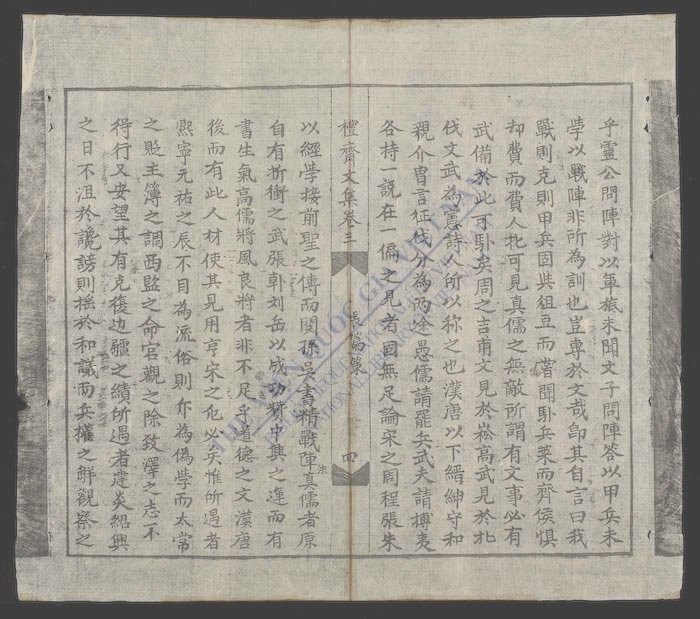 乎靈公問陣對以軍旅未聞文子問陣答以甲兵未
學以戰陣非所為訓也豈專於文哉卽其自言曰我
戰則克則甲兵固與俎豆而嘗聞馱兵萊而齊侯懼
却費而費人北可見真儒之無敵所謂有文事必有
武備於此可馱矣周之吉甫文見於崧高武見於北
伐文武為憲詩人所以称之也漢唐以下縉紳守和
親介冑言征伐分為兩途愚儒請罷兵武夫請搏夷
各持一說在一偏之見者固無足論宋之周程張朱
禮齋文集卷三
長篇策
四
以經學接前聖之傳而関孫吳書精戰陣法真儒者原
自有折衝之武張韓刘岳以成功贊中興之運而有
書生氣高儒將風良將者非不足乎道德之文漢唐
後而有此人材使其見用亨宋之化必矣惟所遇者
熙寧元祐之辰不目為流俗則亦為偽學而太常
之貶主簿之調西監之命官觀之除致澤之志不
得行又安望其有克復边疆之績所遇者建炎紹興
之日不沮於讒謗則搖於和議而兵權之觧觀察之